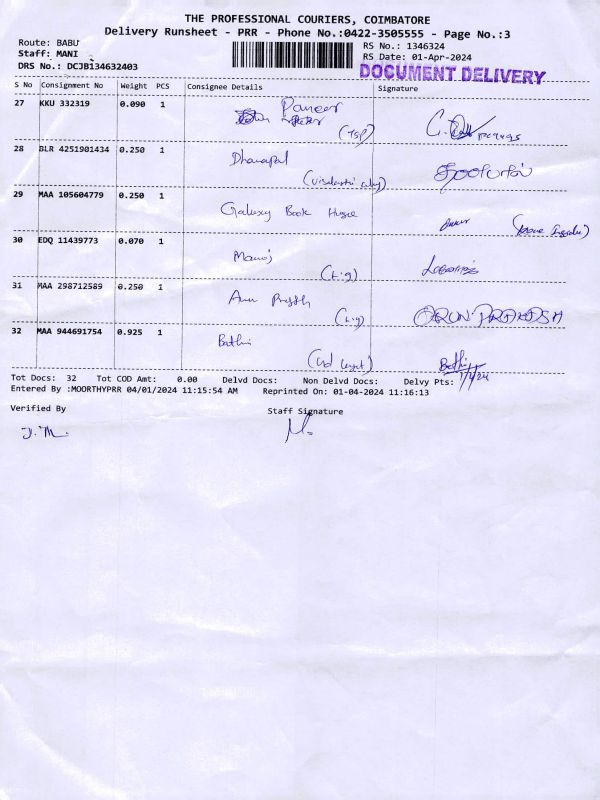 THE PROFESSIONAL COURIERS, COIMBATORE
Delivery Runsheet - PRR - Phone No.:0422-3505555 - Page No.:3
Route: BABU
Staff: MANI
DRS No.: DCJB134632403
RS No.: 1346324
RS Date: 01-Apr-2024
DOCUMENT DELIVERY
S No Consignment No Weight PCS Consignee Details Signature
27 KKU 332319 0.090 1 Paneer
(TSP)
28 BLR 4251901434 0.250 1 Dhanapal
29 MAA 105604779 0.250 1 Galaxy Book House
30 EDQ 11439773 0.070 1 Manoj
(Lig)
31 MAA 298712589 0.250 1 Arun
(Lig) ARUN PRAKASH
32 MAA 944691754 0.925 1 Bathri
Bathri
Tot Docs: 32 Tot COD Amt: 0.00 Delvd Docs: Non Delvd Docs: Delvy Pts:
Entered By :MOORTHYPRR 04/01/2024 11:15:54 AM Reprinted On: 01-04-2024 11:16:13
Verified By Staff Signature